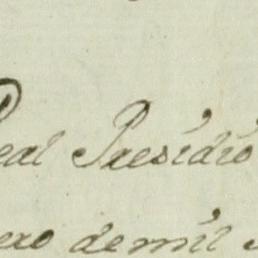 Real Presidio
ero de mil